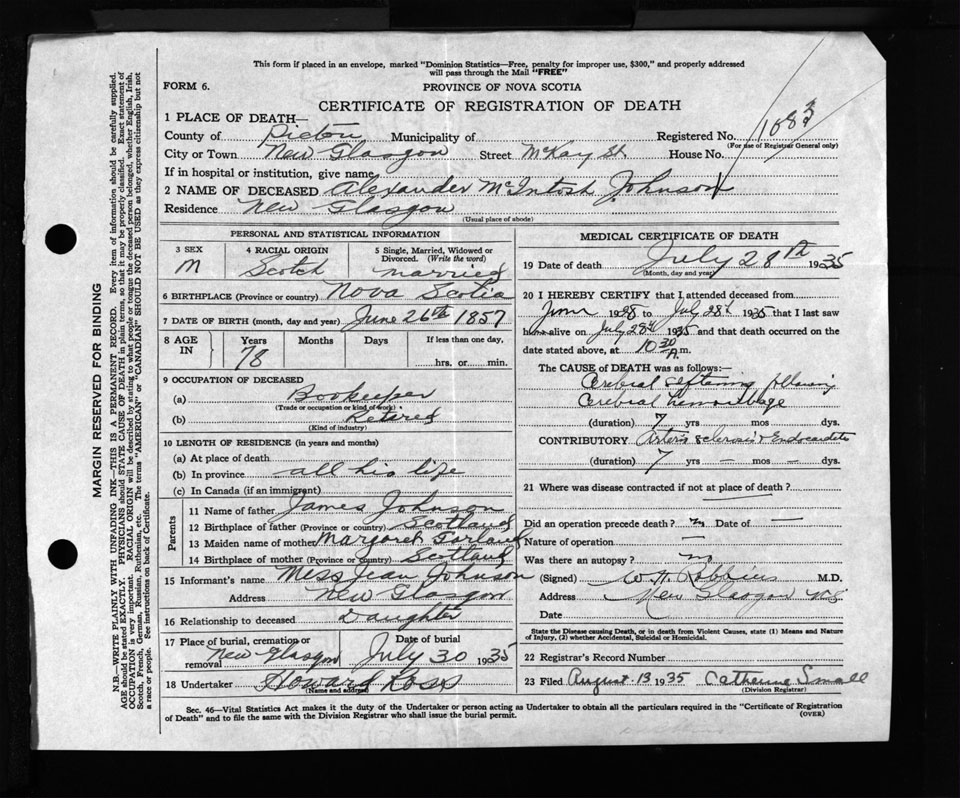 This form if placed in an envelope, marked "Dominion Statistics—Free, penalty for improper use, $300," and properly addressed
will pass through the Mail "FREE"
FORM 6.
PROVINCE OF NOVA SCOTIA
CERTIFICATE OF REGISTRATION OF DEATH
1083
1 PLACE OF DEATH—
County of Pictou Municipality of Registered No.
(For use of Registrar General only)
City or Town New Glasgow Street McKay St House No.
If in hospital or institution, give name
2 NAME OF DECEASED Alexander McIntosh Johnson
Residence New Glasgow
(Usual place of abode)
PERSONAL AND STATISTICAL INFORMATION
3 SEX 4 RACIAL ORIGIN 5 Single, Married, Widowed or
Divorced. (Write the word)
M Scotch married
6 BIRTHPLACE (Province or country) Nova Scotia
7 DATE OF BIRTH (month, day and year) June 26th 1857
8 AGE IN Years Months Days If less than one day,
78 hrs. or min.
9 OCCUPATION OF DECEASED
(a) Bookeeper
(Trade or occupation or kind of work)
(b) Retered
(Kind of industry)
10 LENGTH OF RESIDENCE (in years and months)
(a) At place of death
(b) In province all his life
(c) In Canada (if an immigrant)
Parents
11 Name of father James Johnson
12 Birthplace of father (Province or country) Scotland
13 Maiden name of mother Margaret
14 Birthplace of mother (Province or country) Scotland
15 Informant's name Miss Jean Johnson
Address New Glasgow
16 Relationship to deceased Daughter
17 Place of burial, cremation or removal New Glasgow Date of burial July 30 1935
18 Undertaker Howard Ross
(Name and address)
MEDICAL CERTIFICATE OF DEATH
19 Date of death July 28th 1935
(Month, day and year)
20 I HEREBY CERTIFY that I attended deceased from
1928 to July 28th 1935 that I last saw
him alive on July 28th 1935 and that death occurred on the
date stated above, at 10 30 A.m.
The CAUSE OF DEATH was as follows:—
Cerebral softening following
Cerebral hemorrhage
(duration) 7 yrs mos dys.
CONTRIBUTORY Arterio sclerosis & Endocarditis
(duration) 7 yrs — mos — dys.
21 Where was disease contracted if not at place of death?
Did an operation precede death? no Date of —
Nature of operation —
Was there an autopsy? no
(Signed) W. H. Robbins M.D.
Address New Glasgow NS
Date
State the Disease causing Death, or in death from Violent Causes, state (1) Means and Nature
of Injury, (2) whether Accidental, Suicidal or Homicidal.
22 Registrar's Record Number
23 Filed August 13 1935 Catherine Small
(Division Registrar)
Sec. 46—Vital Statistics Act makes it the duty of the Undertaker or person acting as Undertaker to obtain all the particulars required in the "Certificate of Registration
of Death" and to file the same with the Division Registrar who shall issue the burial permit.
(OVER)
MARGIN RESERVED FOR BINDING
N.B.—WRITE PLAINLY WITH UNFADING INK—THIS IS A PERMANENT RECORD. Every item of information should be carefully supplied.
AGE should be stated EXACTLY. PHYSICIANS should STATE CAUSE OF DEATH in plain terms, so that it may be properly classified. Exact statement of
OCCUPATION is very important. RACIAL ORIGIN will be described by stating to what people or tongue the deceased person belonged, whether English, Irish,
Scotch, French, German, Russian, Ruthenian, etc. The terms "AMERICAN" or "CANADIAN" SHOULD NOT BE USED as they express citizenship but not
a race or people. See instructions on back of Certificate.